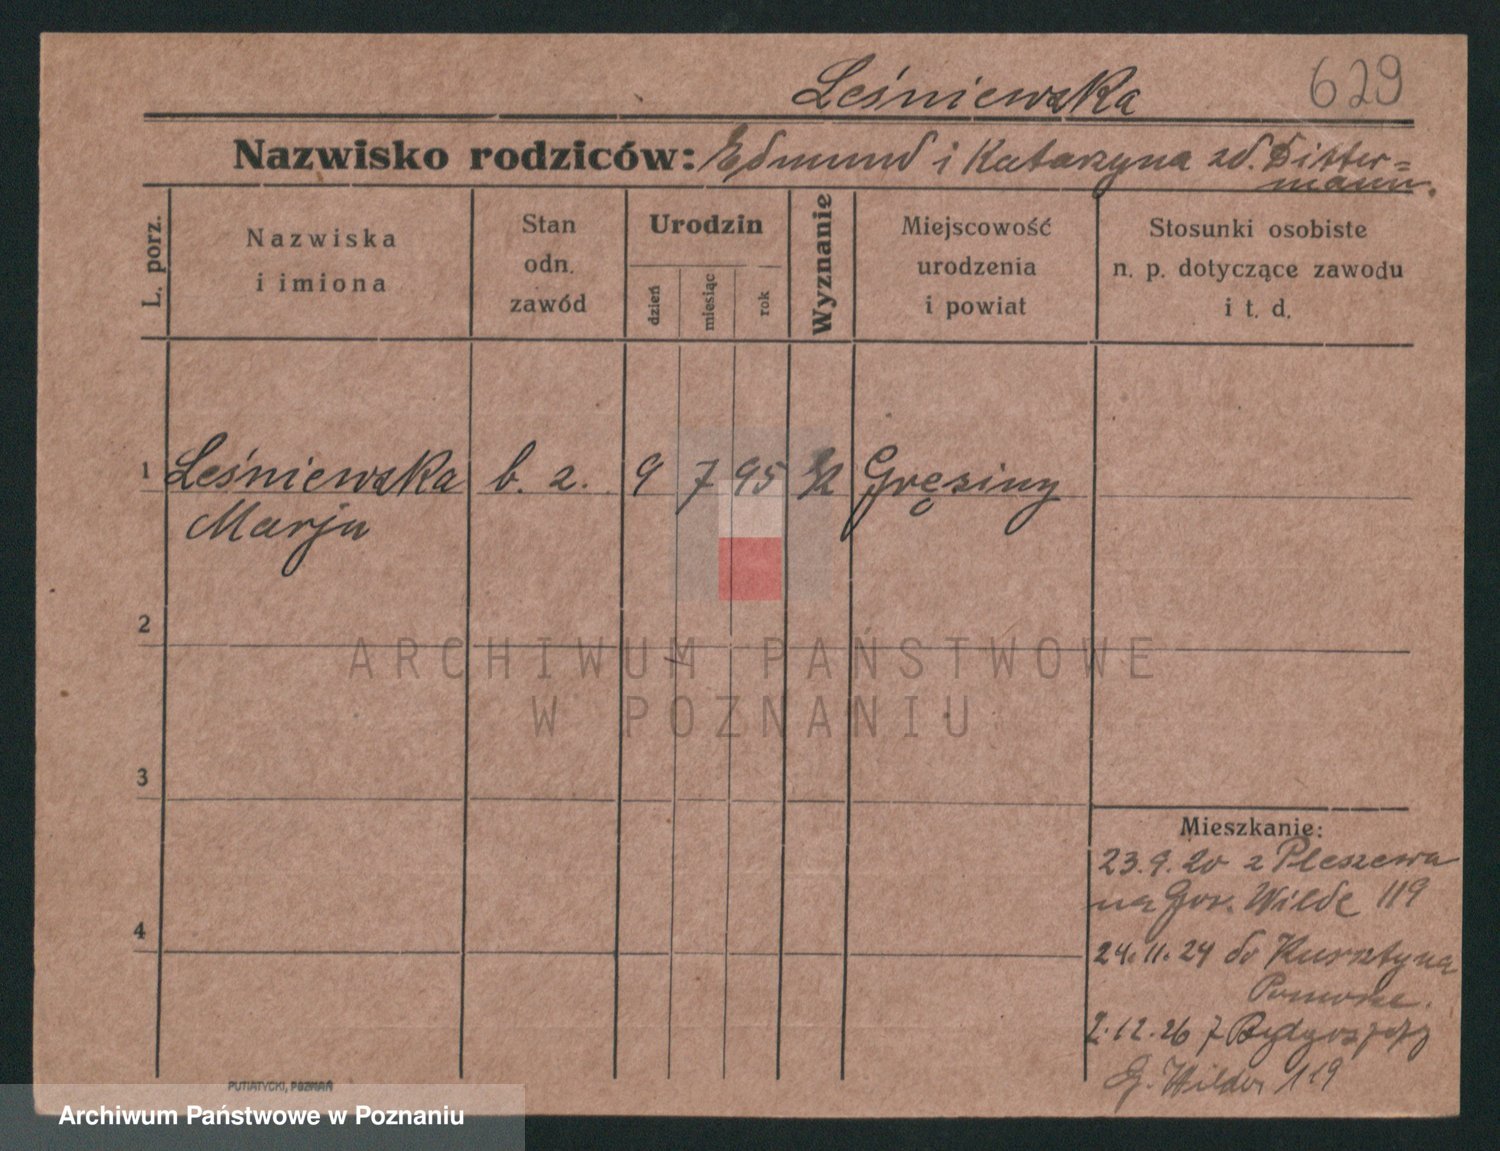 Leśniewska 629
Nazwisko rodziców: Edmund i Katarzyna zd. Ditter=
mann.
L. porz.
Nazwiska
i imiona
Stan
odn.
zawód
Urodzin
dzień
miesiąc
rok
Wyznanie
Miejscowość
urodzenia
i powiat
Stosunki osobiste
n. p. dotyczące zawodu
i t. d.
1 Leśniewska b. z. 9 7 95 Gręziny
Marja
2
ARCHIWUM PAŃSTWOWE
W POZNANIU
3
Mieszkanie:
23.9.20 z Pleszewa
na Gór. Wilde 119
4
24.11.24 do
2.12.26 z Bydgoszczy
G. Wilda 119
PUTIATYCKI, POZNAŃ
Archiwum Państwowe w Poznaniu